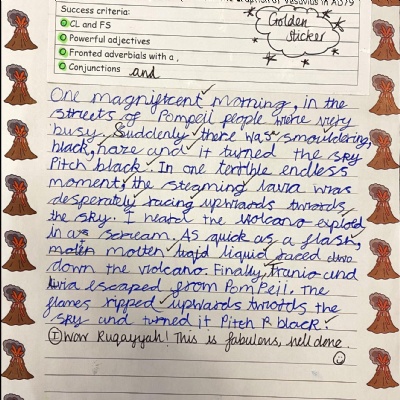 Vesuvius in AD79
Success criteria:
CL and FS
Powerful adjectives
Fronted adverbials with a ,
Conjunctions and
Golden sticker
One magnificent morning, in the
streets of Pompeii people were very
busy. Suddenly there was smouldering,
black, haze and it turned the sky
Pitch black. In one terrible endless
moment, the steaming lava was
desperately racing upwards towards
the sky. I heard the volcano explod
in a scream. As quick as a flash,
molten liquid raced
down the volcano. Finally, Tranio and
livia escaped from PomPeii. The
flames ripped upwards towards the
sky and turned it Pitch black.
I Wow Ruqayyah! This is fabulous, well done.